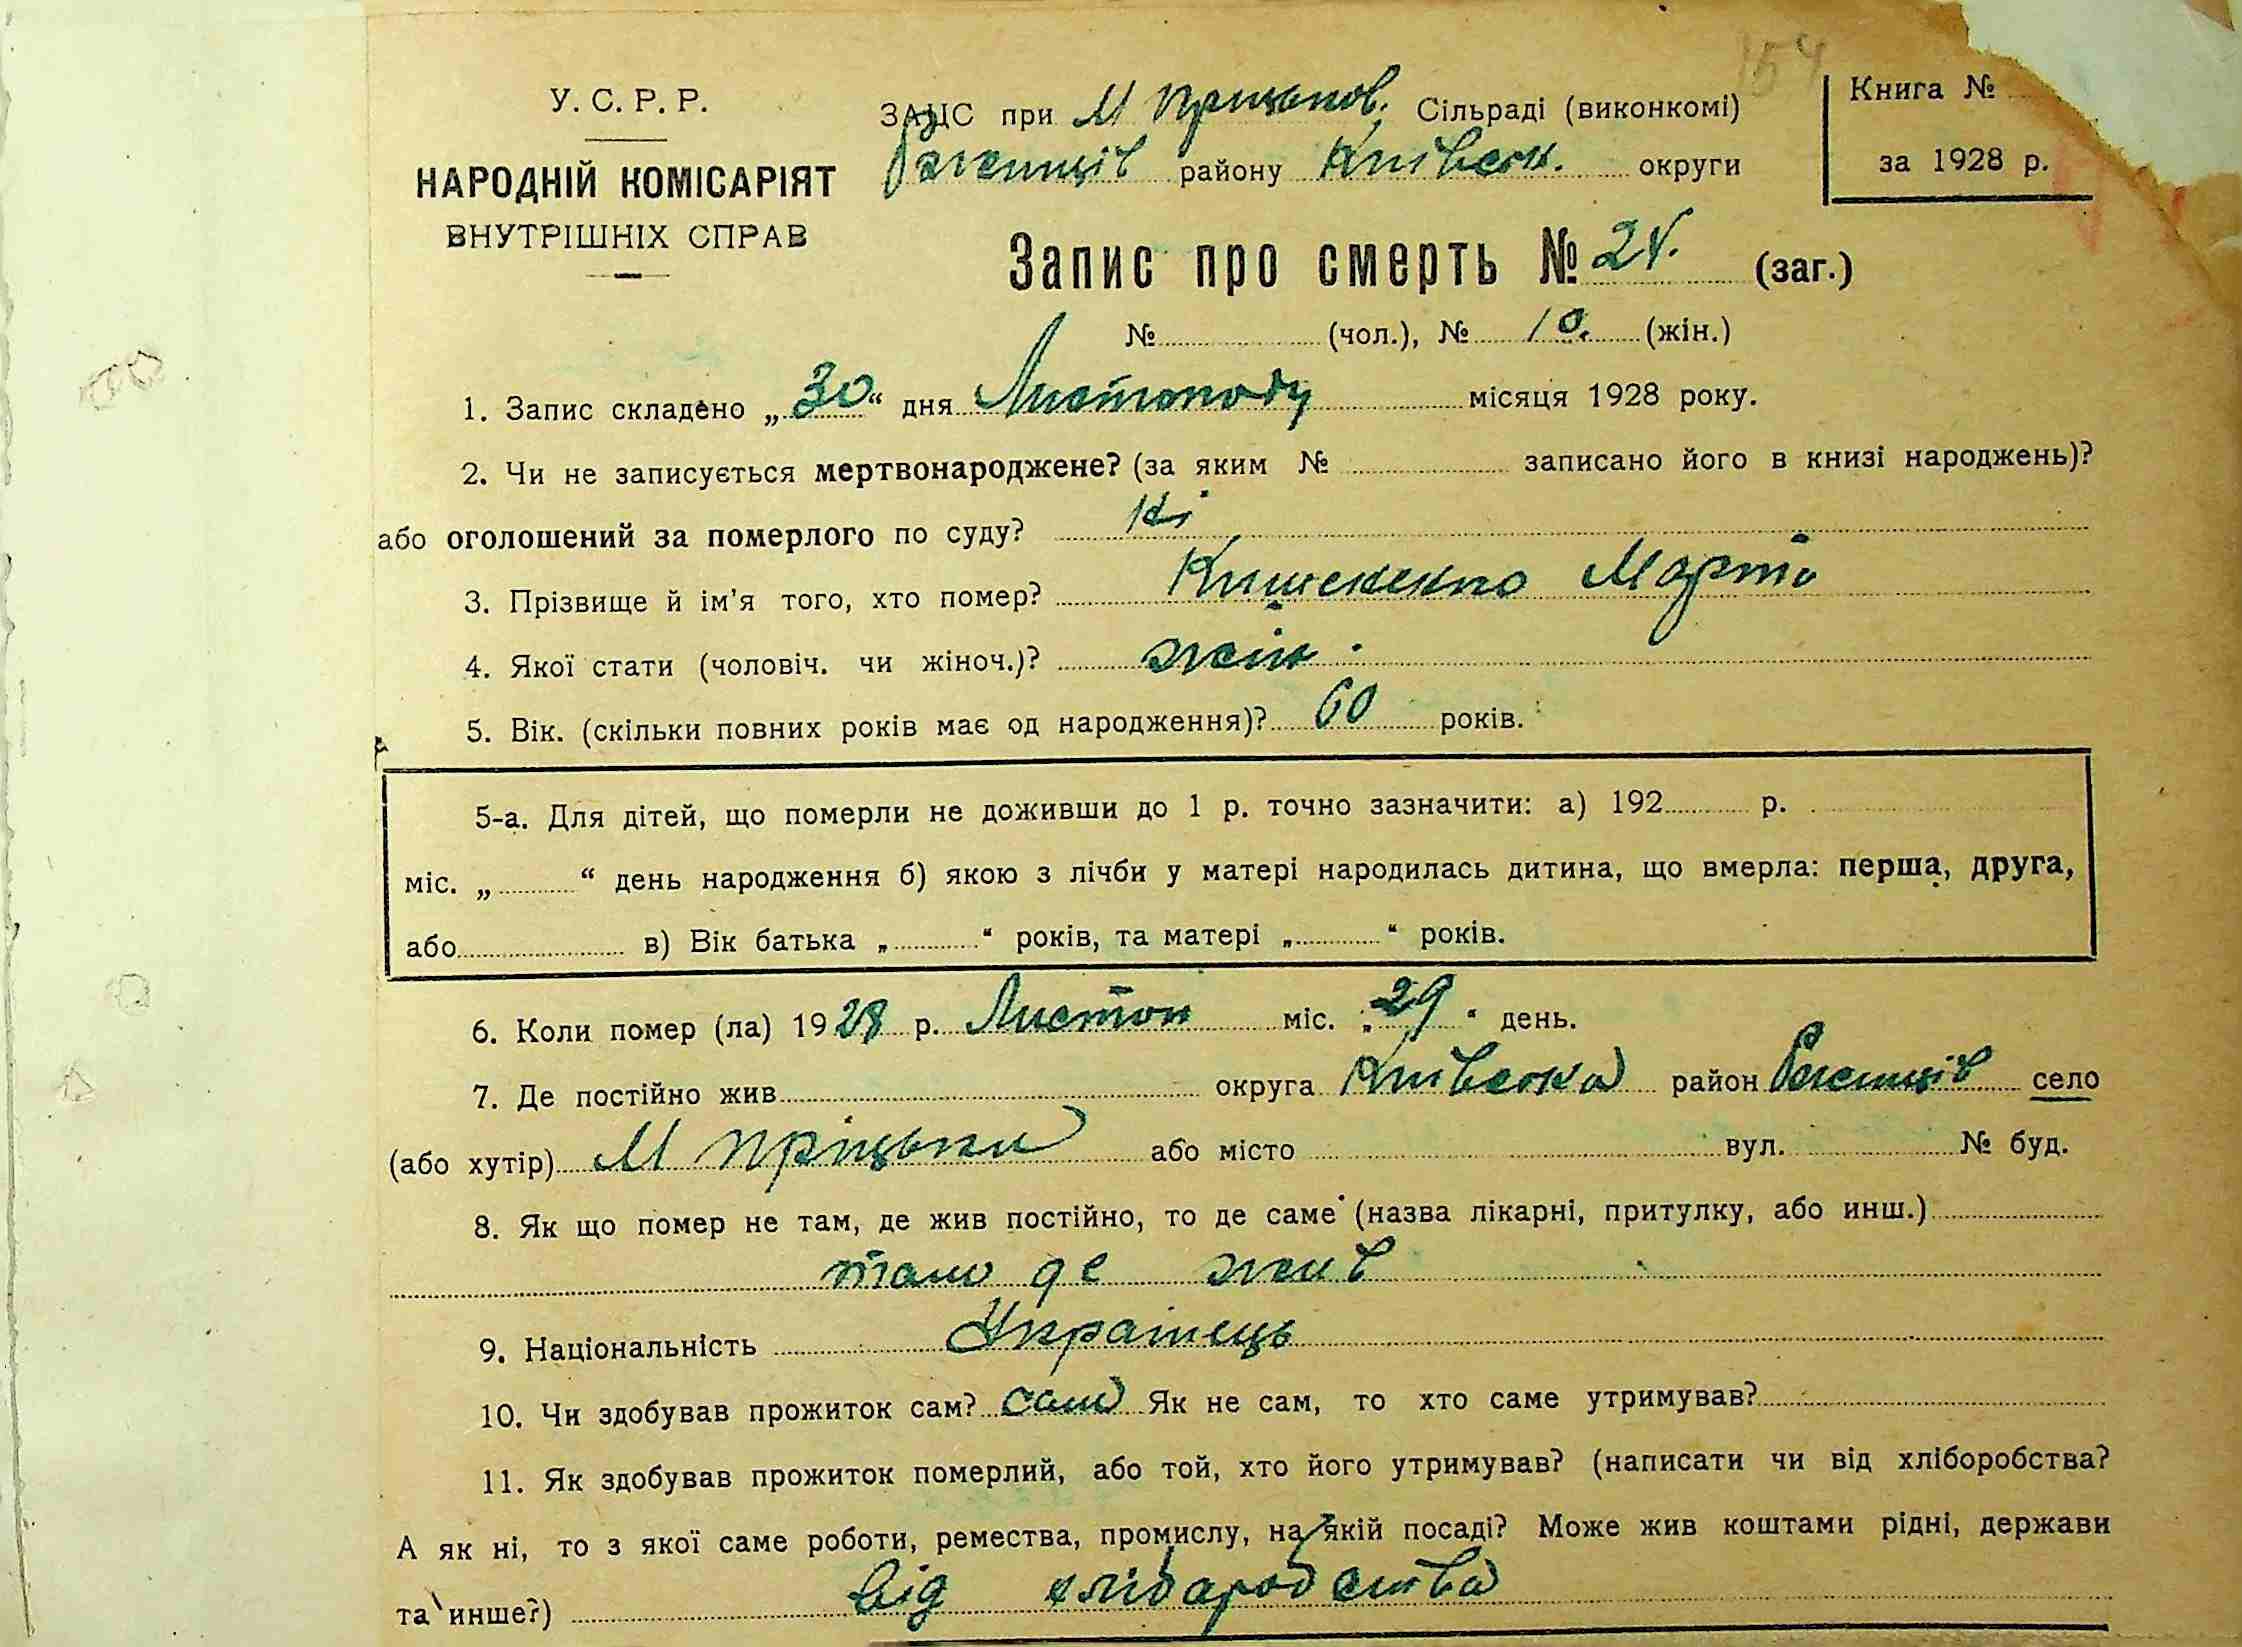 154
У. С. Р. Р.
НАРОДНІЙ КОМІСАРІЯТ
ВНУТРІШНІХ СПРАВ
ЗАЦС при М Пріцьков. Сільраді (виконкомі)
Ржищів району Київськ. округи
Книга №
за 1928 р.
Запис про смерть № 24. (заг.)
№ (чол.), № 10. (жін.)
1. Запис складено „30“ дня Листопаду місяця 1928 року.
2. Чи не записується мертвонароджене? (за яким № записано його в книзі народжень)?
або оголошений за померлого по суду? Ні
3. Прізвище й ім'я того, хто помер? Марта
4. Якої стати (чоловіч. чи жіноч.)? жін.
5. Вік. (скільки повних років має од народження)? 60 років.
5-а. Для дітей, що померли не доживши до 1 р. точно зазначити: а) 192 р.
міс. „ “ день народження б) якою з лічби у матері народилась дитина, що вмерла: перша, друга,
або в) Вік батька „ “ років, та матері „ “ років.
6. Коли помер (ла) 1928 р. Листоп міс. „29“ день.
7. Де постійно жив округа Київська район Ржищів село
(або хутір) М Пріцьки або місто вул. № буд.
8. Як що помер не там, де жив постійно, то де саме (назва лікарні, притулку, або инш.)
тамо де жив
9. Національність Українець
10. Чи здобував прожиток сам? сам Як не сам, то хто саме утримував?
11. Як здобував прожиток померлий, або той, хто його утримував? (написати чи від хліборобства?
А як ні, то з якої саме роботи, ремества, промислу, на якій посаді? Може жив коштами рідні, держави
та инше?) від хлібаробства